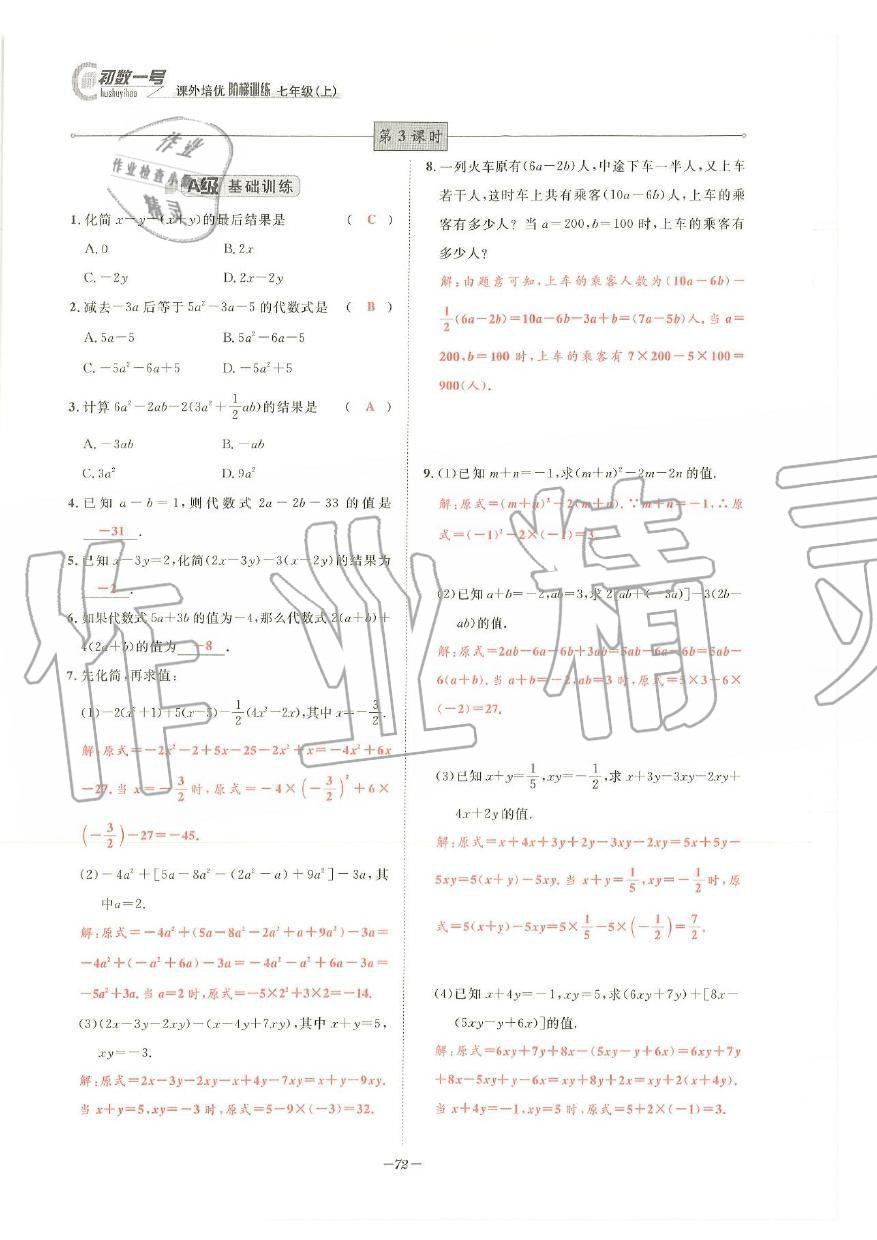 初数一号
hushuyihao
课外培优 阶梯训练 七年级(上)
第3课时
A级 基础训练
1.化简 x-y-(x+y)的最后结果是 ( C )
A.0 B.2x
C.-2y D.2x-2y
2.减去-3a后等于5a²-3a-5的代数式是 ( B )
A.5a-5 B.5a²-6a-5
C.-5a²-6a+5 D.-5a²+5
3.计算6a²-2ab-2(3a²+1/2ab)的结果是 ( A )
A.-3ab B.-ab
C.3a² D.9a²
4.已知 a-b=1,则代数式 2a-2b-33 的值是
-31 .
5.已知x-3y=2,化简(2x-3y)-3(x-2y)的结果为
-2 .
6.如果代数式5a+3b的值为-4,那么代数式2(a+b)+
4(2a+b)的值为 -8 .
7.先化简,再求值:
(1)-2(x²+1)+5(x-5)-1/2(4x²-2x),其中x=-3/2.
解:原式=-2x²-2+5x-25-2x²+x=-4x²+6x
-27.当 x=-3/2时,原式=-4×(-3/2)²+6×
(-3/2)-27=-45.
(2)-4a²+[5a-8a²-(2a²-a)+9a²]-3a,其
中a=2.
解:原式=-4a²+(5a-8a²-2a²+a+9a²)-3a=
-4a²+(-a²+6a)-3a=-4a²-a²+6a-3a=
-5a²+3a.当a=2时,原式=-5×2²+3×2=-14.
(3)(2x-3y-2xy)-(x-4y+7xy),其中x+y=5,
xy=-3.
解:原式=2x-3y-2xy-x+4y-7xy=x+y-9xy.
当x+y=5,xy=-3时,原式=5-9×(-3)=32.
8.一列火车原有(6a-2b)人,中途下车一半人,又上车
若干人,这时车上共有乘客(10a-6b)人,上车的乘
客有多少人?当a=200,b=100时,上车的乘客有
多少人?
解:由题意可知,上车的乘客人数为(10a-6b)-
1/2(6a-2b)=10a-6b-3a+b=(7a-5b)人.当a=
200,b=100时,上车的乘客有7×200-5×100=
900(人).
9.(1)已知m+n=-1,求(m+n)²-2m-2n的值.
解:原式=(m+n)²-2(m+n).∵m+n=-1,∴原
式=(-1)²-2×(-1)=3.
(2)已知a+b=-2,ab=3,求2[ab+(-3a)]-3(2b-
ab)的值.
解:原式=2ab-6a-6b+3ab=5ab-6a-6b=5ab-
6(a+b).当a+b=-2,ab=3时,原式=5×3-6×
(-2)=27.
(3)已知x+y=1/5,xy=-1/2,求x+3y-3xy-2xy+
4x+2y的值.
解:原式=x+4x+3y+2y-3xy-2xy=5x+5y-
5xy=5(x+y)-5xy.当x+y=1/5,xy=-1/2时,原
式=5(x+y)-5xy=5×1/5-5×(-1/2)=7/2.
(4)已知x+4y=-1,xy=5,求(6xy+7y)+[8x-
(5xy-y+6x)]的值.
解:原式=6xy+7y+8x-(5xy-y+6x)=6xy+7y
+8x-5xy+y-6x=xy+8y+2x=xy+2(x+4y).
当x+4y=-1,xy=5时,原式=5+2×(-1)=3.
-72-
作业
作业检查小
精灵
作业精灵